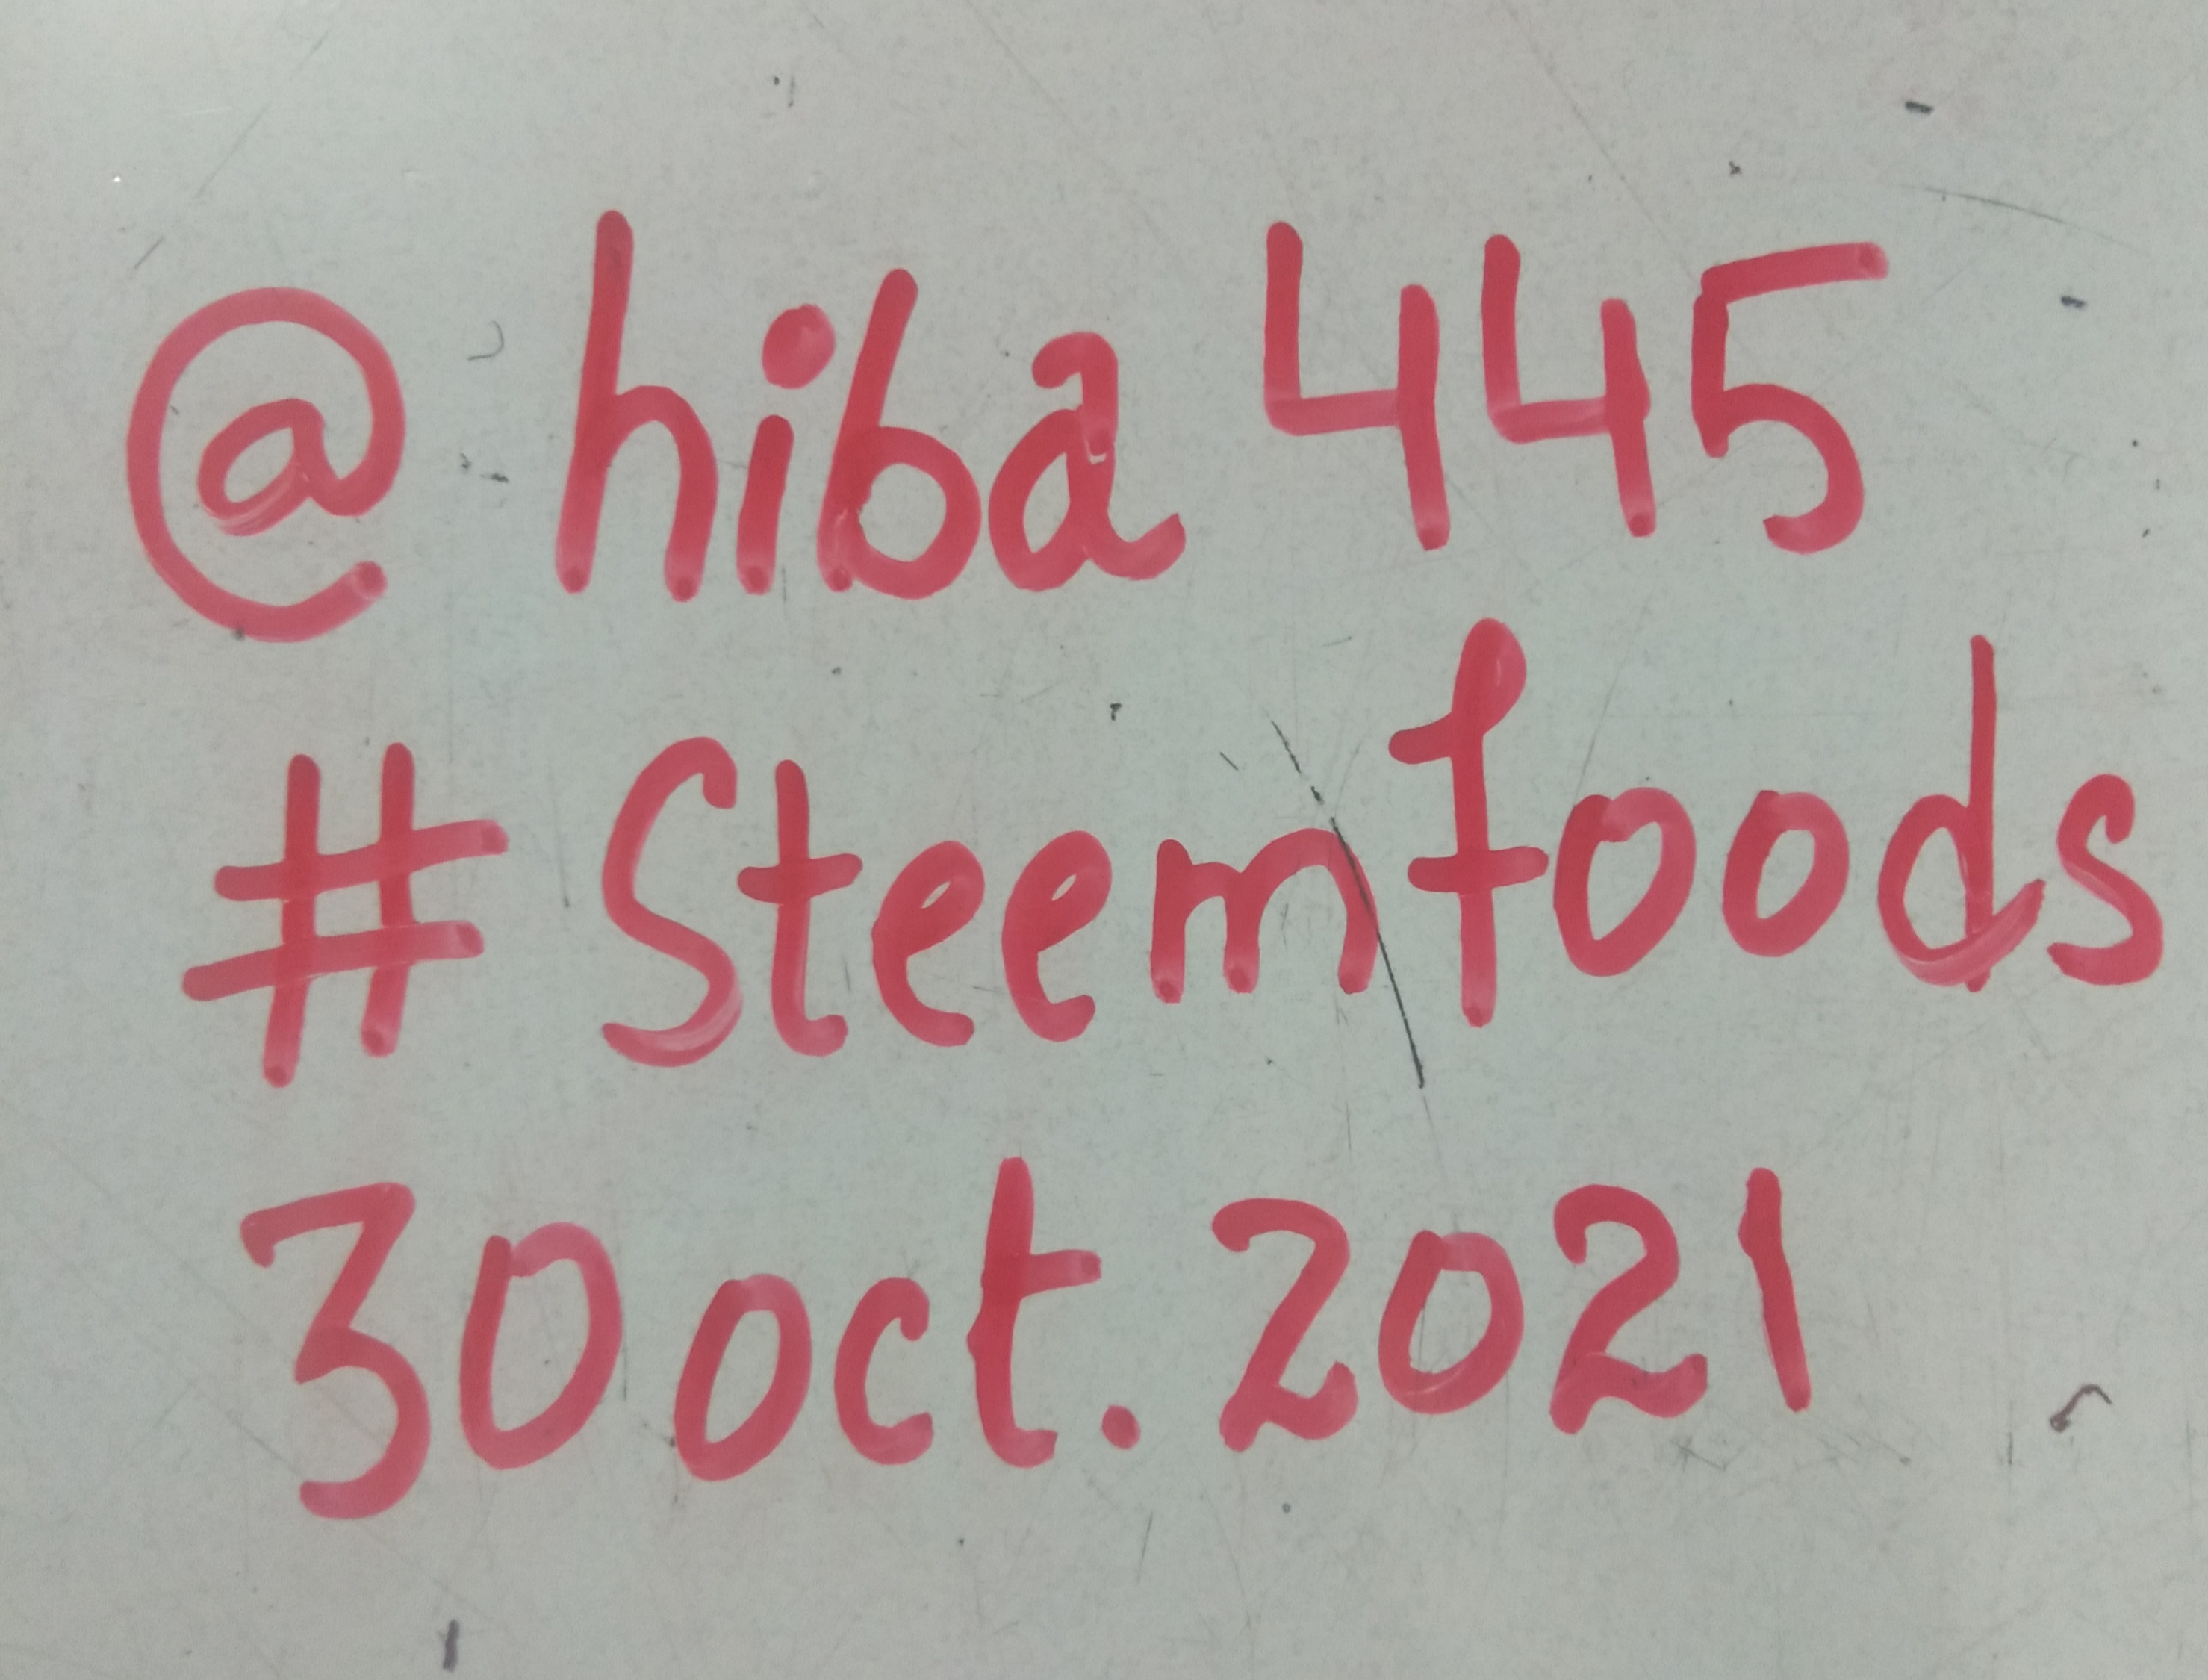 @ hiba 445
# Steemfoods
30 oct. 2021